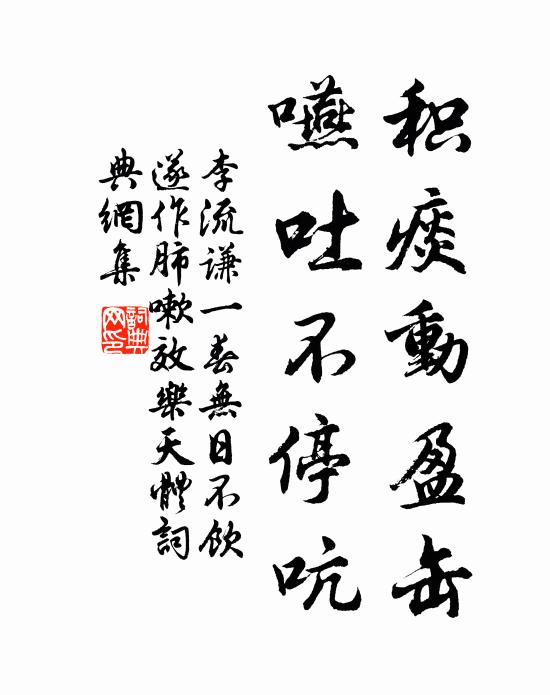 积痰動盈缶
嚥吐不停吭
李流谦一春無日不飲
遂作肺嗽效樂天體詞
典網集
詞典網印